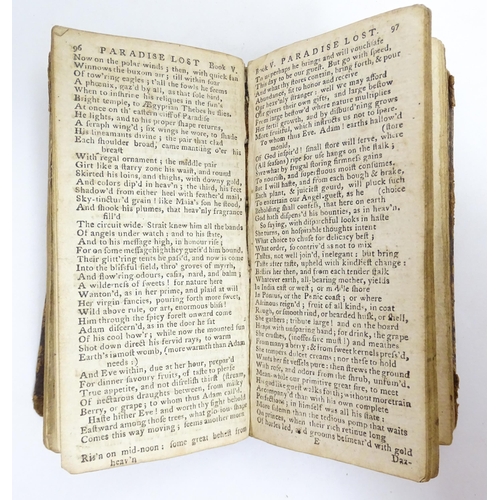 96 PARADISE LOST Book V.
Now on the polar winds; then, with quick fan
Winnows the buxom air; till within soar
Of tow'ring eagles t'all the fowls he seems
A phœnix, gaz'd by all, as that sole bird,
When to inshrine his reliques in the sun's
Bright temple, to Ægyptian Thebes he flies.
At once on th' eastern cliff of Paradise
He lights, and to his proper shape returns,
A seraph wing'd; six wings he wore, to shade
His lineaments divine; the pair that clad
Each shoulder broad, came mantling o'er his
breast
With regal ornament; the middle pair
Girt like a starry zone his waist, and round
Skirted his loins, and thighs, with downy gold,
And colors dip'd in heav'n; the third, his feet
Shadow'd from either heel with feather'd mail,
Sky-tinctur'd grain! like Maia's son he stood,
And shook his plumes, that heav'nly fragrance
fill'd
The circuit wide. Strait knew him all the bands
Of angels under watch; and to his state,
And to his message high, in honour rise;
For on some message high they guess'd him bound.
Their glitt'ring tents he pass'd, and now is come
Into the blissful field, thro' groves of myrrh,
And flow'ring odours, cassia, nard, and balm;
A wilderness of sweets! for nature here
Wanton'd, as in her prime, and plaid at will
Her virgin-fancies, pouring forth more sweet,
Wild above rule, or art, enormous bliss!
Him through the spicy forest onward come
Adam discern'd, as in the door he sat
Of his cool bow'r; while now the mounted sun
Shot down direct his fervid rays, to warm
Earth's inmost womb, (more warmth than Adam
needs:)
And Eve within, due at her hour, prepar'd
For dinner savoury fruits, of taste to please
True appetite, and not disrelish thirst
Of nectarous draughts between, from milky
Berry, or grape; to whom thus Adam call'd.
Haste hither Eve! and worth thy sight behold
Eastward among those trees, what glorious shape
Comes this way moving; seems another morn
Ris'n on mid-noon; some great behest from
heav'n
Book V. PARADISE LOST. 97
To us perhaps he brings; and will vouchsafe
This day to be our guest. But go with speed,
And what thy stores contain, bring forth, & pour
Abundance, fit to honor and receive
Our heav'nly stranger; well we may afford
Our givers their own gifts, and large bestow
From large bestow'd where nature multiplies
Her fertil growth, and by disburd'ning grows
More fruitful, which instructs us not to spare.
To whom thus Eve. Adam! earths hallow'd
mould, (store
Of God inspir'd! small store will serve, where
(All season) ripe for use hangs on the stalk;
Save what by frugal storing firmness gains
To nourish, and superfluous moist consumes.
But I will haste, and from each bough & brake,
Each plant, & juciest gourd, will pluck such
To entertain our Angel-guest, as he (choice
Beholding shall confess, that here on earth
God hath dispens'd his bounties, as in heav'n.
So saying, with dispatchful looks in haste
She turns, on hospitable thoughts intent
What choice to chuse for delicacy best;
What order, so contriv'd as not to mix
Tasts, not well join'd, inelegant; but bring
Taste after taste, upheld with kindliest change;
Bestirs her then, and from each tender stalk
Whatever earth, all-bearing mother, yeilds
In India east or west; or middle shore
In Pontus, or the Punic coast; or where
Alcinous reign'd; fruit of all kinds, in coat
Rough, or smooth rind, or bearded husk, or shell,
She gathers; tribute large! and on the board
Heaps with unsparing hand; for drink, the grape
She crushes, (inoffensive must!) and meathes
From many a berry; & from sweet kernels press'd,
She tempers dolcet creams; nor these to hold
Wants her fit vessels pure: then strews the ground
With rose, and odors from the shrub, unfum'd.
Mean while our primitive great sire, to meet
His god-like guest walks forth; without more train
Accompany'd, than with his own compleat
Perfections; in himself was all his state;
More solemn than the tedious pomp that waits
On princes, when their rich retinue long
Of horses led, and grooms besmear'd with gold
E Daz-